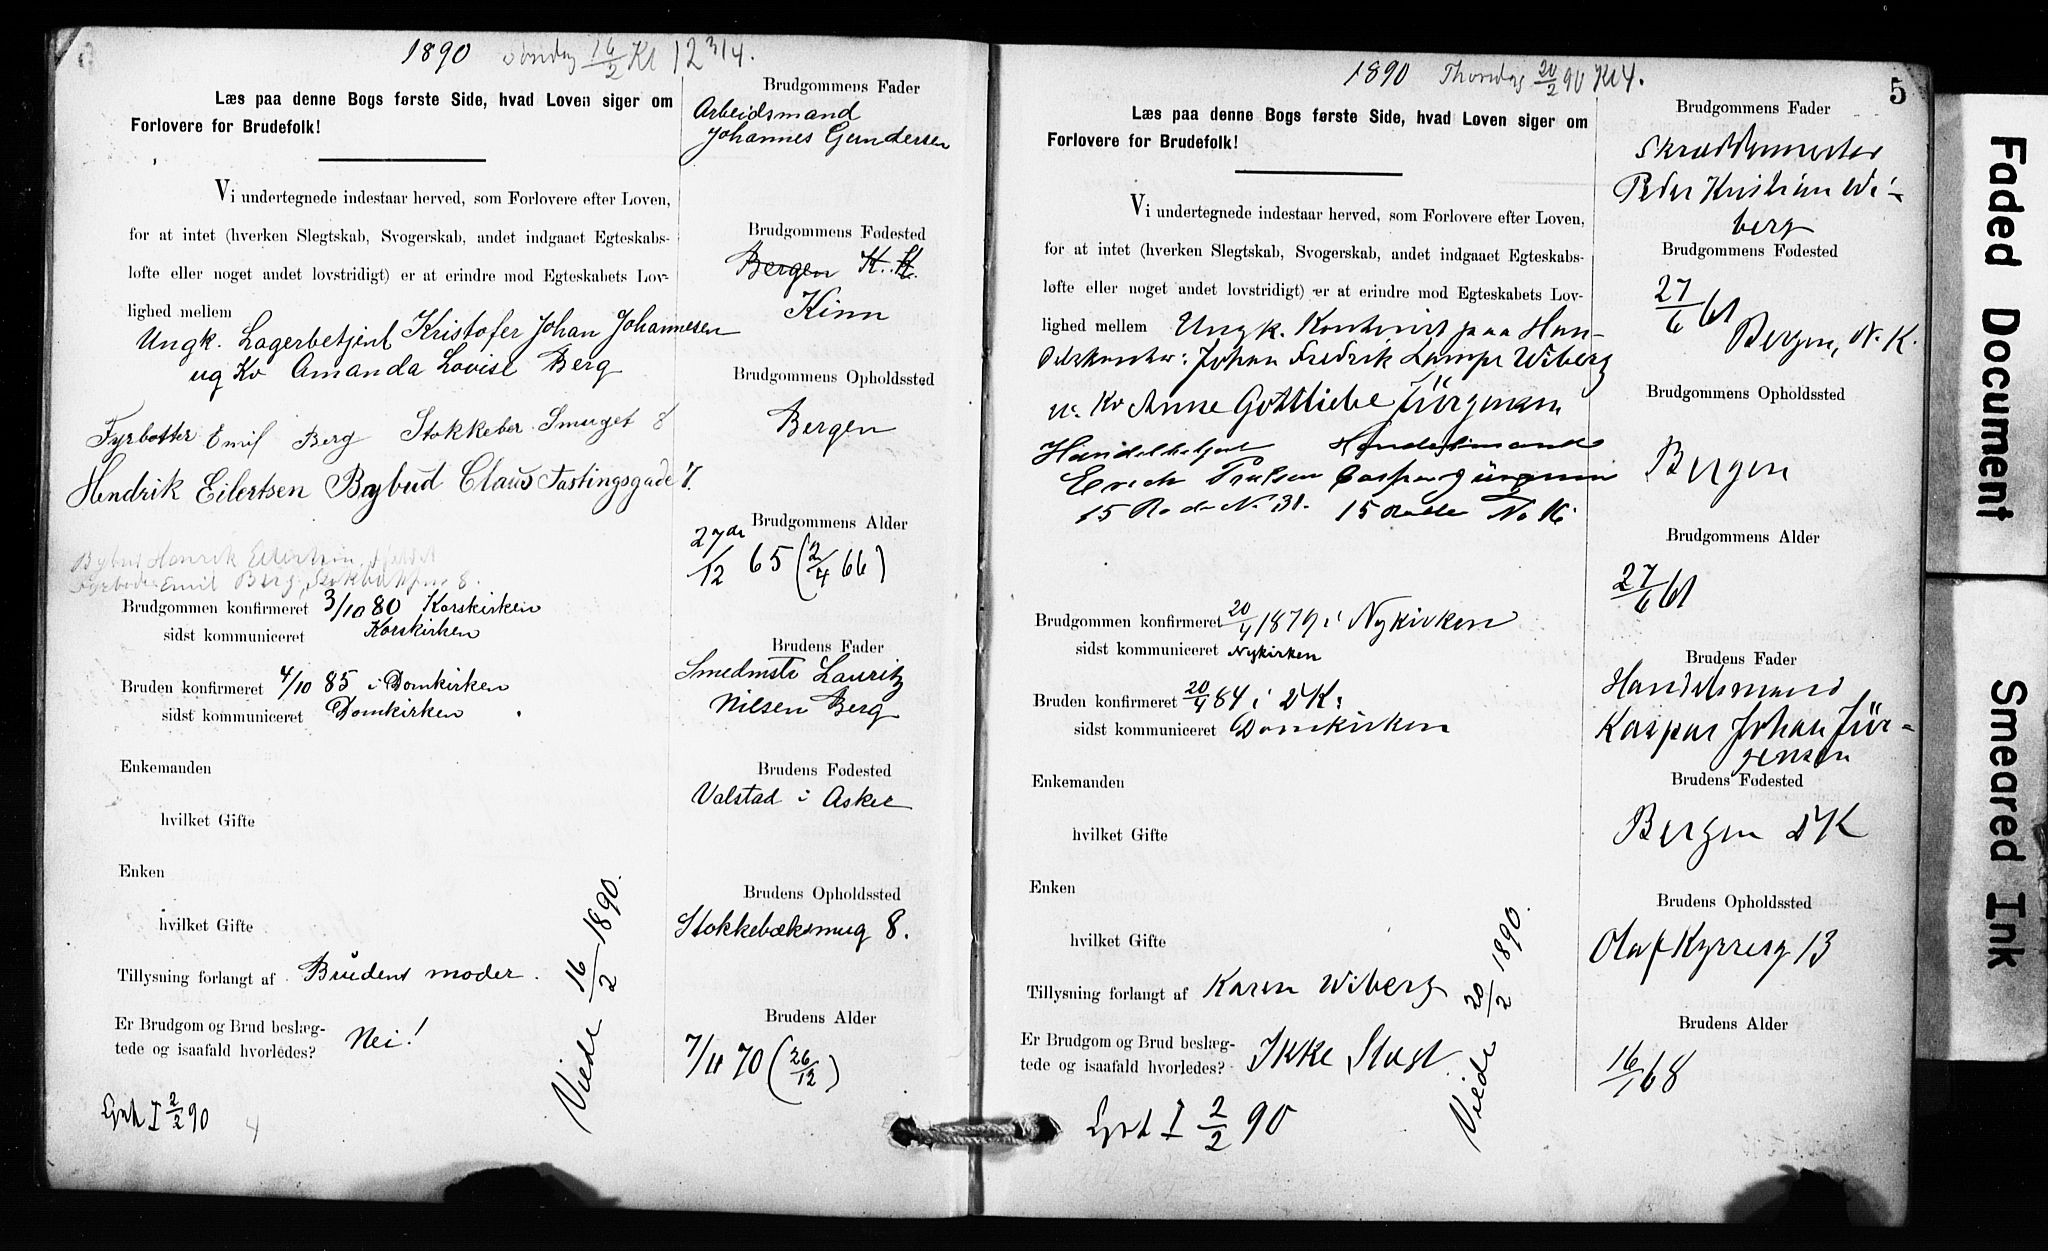 1890 Søndag 16/2 Kl 12 3/4.
Læs paa denne Bogs første Side, hvad Loven siger om
Forlovere for Brudefolk!
Vi undertegnede indestaar herved, som Forlovere efter Loven,
for at intet (hverken Slegtskab, Svogerskab, andet indgaaet Egteskabs-
løfte eller noget andet lovstridigt) er at erindre mod Egteskabets Lov-
lighed mellem
Ungk. Lagerbetjent Kristofer Johan Johannesen
og Kv Amanda Lovise Berg
Fyrbøtter Emil Berg Stokkeber Smuget 8
Hendrik Eilertsen Bybud Claus Fastingsgade
Bybud Henrik Eilertsen
Fyrbøder Emil Berg, 8.
Brudgommen konfirmeret 3/10 80 Korskirken
sidst kommuniceret Korskirken
Bruden konfirmeret 4/10 85 i Domkirken
sidst kommuniceret Domkirken
Enkemanden
hvilket Gifte
Enken
hvilket Gifte
Tillysning forlangt af Brudens moder.
Er Brudgom og Brud beslæg-
tede og isaafald hvorledes? Nei!
Viede 16/2 1890.
Lyst I 2/2 90
4
Brudgommens Fader
Arbeidsmand
Johannes Gundersen
Brudgommens Fødested
Bergen K. K.
Kinn
Brudgommens Opholdssted
Bergen
Brudgommens Alder
27de/12 65 (2/4 66)
Brudens Fader
Smedmstr Lauritz
Nilsen Berg
Brudens Fødested
Valstad i Asker
Brudens Opholdssted
Stokkebæksmug 8.
Brudens Alder
7/11 70 (26/12)
1890 Thorsdag 20/2 90 Kl 4.
5
Læs paa denne Bogs første Side, hvad Loven siger om
Forlovere for Brudefolk!
Vi undertegnede indestaar herved, som Forlovere efter Loven,
for at intet (hverken Slegtskab, Svogerskab, andet indgaaet Egteskabs-
løfte eller noget andet lovstridigt) er at erindre mod Egteskabets Lov-
lighed mellem Ungk. Kontorist paa Han-
delskontor: Johan Fredrik Lampe Wiberg
o. Kv Anne Gottliebe Jürgensen
Handelbetjent Handelsmand
Erich Poulsen Caspar Jürgensen
15 Rode No 31. 15 Rode No 16
Brudgommen konfirmeret 20/4 1879 i Nykirken
sidst kommuniceret Nykirken
Bruden konfirmeret 20/4 84 i DK:
sidst kommuniceret Domkirken
Enkemanden
hvilket Gifte
Enken
hvilket Gifte
Tillysning forlangt af Karen Wiberg
Er Brudgom og Brud beslæg-
tede og isaafald hvorledes? Ikke Slægt.
Viede 20/2 1890.
Lyst I 2/2 90
Brudgommens Fader
Skræddermester
Peder Kristian Wi-
berg
Brudgommens Fødested
27/6 61
Bergen, N. K.
Brudgommens Opholdssted
Bergen
Brudgommens Alder
27/6 61
Brudens Fader
Handelsmand
Kaspar Johan Jür-
gensen
Brudens Fødested
Bergen DK
Brudens Opholdssted
Olaf Kyrresg 13
Brudens Alder
16/1 68
Faded Document
Smeared Ink